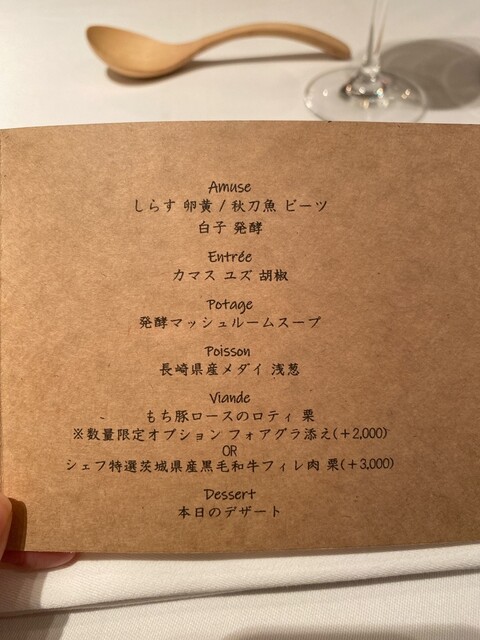 Amuse
しらす 卵黄 / 秋刀魚 ビーツ
白子 発酵
Entrée
カマス ユズ 胡椒
Potage
発酵マッシュルームスープ
Poisson
長崎県産メダイ 浅葱
Viande
もち豚ロースのロティ 栗
※数量限定オプション フォアグラ添え(＋2,000)
OR
シェフ特選茨城県産黒毛和牛フィレ肉 栗(＋3,000)
Dessert
本日のデザート